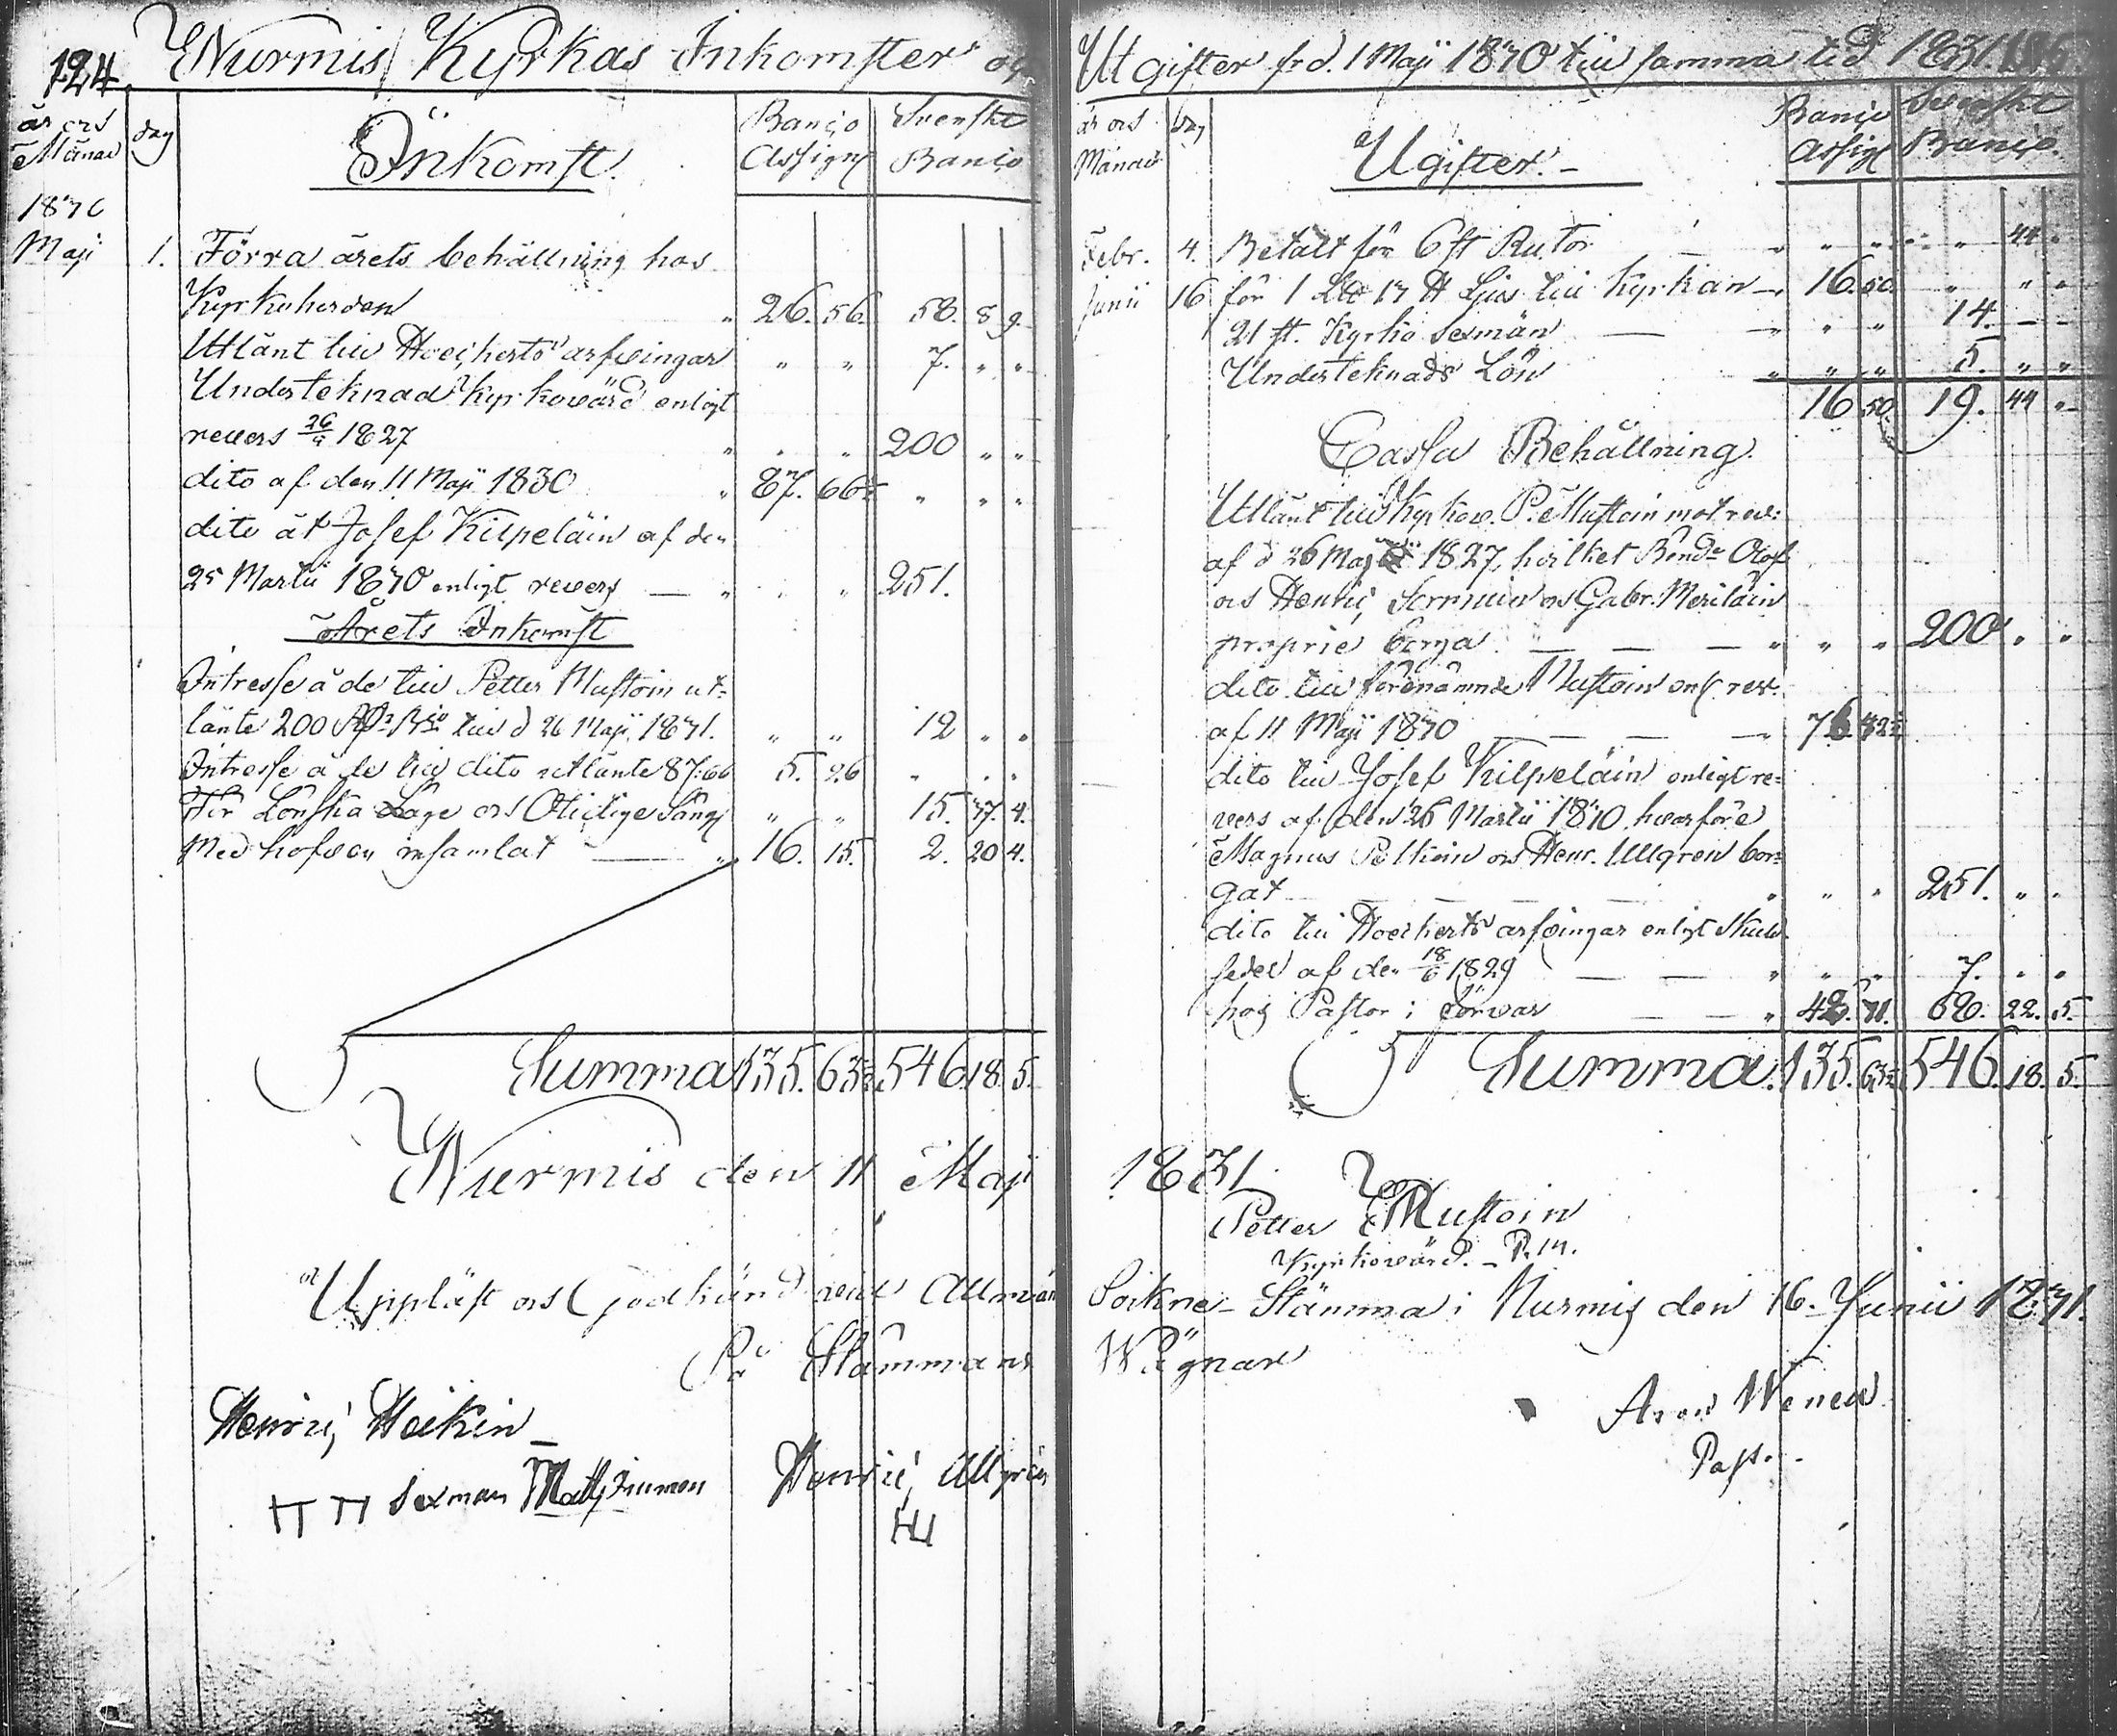 124.
Nurmis Kyrkas Inkomster oc
år ocs Månad
dag
Inkomst.
Banco Assign
Svenskt Banco
1830
Maji 1. Förra årets behållning hos
Kyrkoherden " 26. 56. 58. 8 9
Utlånt till Hoeckerts arfvingar " " 7. " "
Underteknad Kyrkovärd enligt
revers 26/4 1827 " " " 200 " "
dito af den 11 Maji 1830 " 87. 66½ " " "
dito åt Josef Kilpeläin af den
25 Martii 1830 enligt revers — " " " 251.
Årets Inkomst
Intresse å de till Petter Mustoin ut-
lånte 200 Bco till d 26 Maji 1831. " " 12 " "
Intresse å de till dito utlånte 87:66 5. 26 " " "
För Lönska Läge ocs Otidige Säng " " 15. 37. 4.
Med hofven insamlat — " 16. 15. 2. 20 4.
Summa 135. 63½ 546. 18. 5.
Nurmis den 11 Maji
Uppläst ocs Godkänd vid Allmän
På Stämmans
Henric Heikin
Sexman Matts
Henric Ullgren
Utgifter fr d. 1 Maji 1830 till samma tid 1831.
år ocs Månad
dag
Ugifter.
Banco Assign
Svenskt Banco.
Febr. 4. Betalt för 6 st Rutor " " " " 44 "
Junii 16 för 1 17 Ljus till Kyrkan 16. 50. " " "
21 st. Kyrko sexmän — " " " 14. — —
Underteknads Lön " " " 5. " "
16 50 19. 44 "
Cassa Behållning.
Utlånt till Kyrkov. P. Mustoin mot rev:
af d 26 Maji 1827, hvilket Bönd. Olof
ocs Henric ocs Gabr. Meriläin
proprie borga. — — — " " " 200 " "
dito till förenämnde Mustoin enl. rev.
af 11 Maji 1830 — — — 76 82½
dito till Josef Kilpeläin enligt re-
vers af den 26 Martii 1830. hvarföre
Magnus ocs Henr. Ullgren bor-
gat — — — " " " 251. " "
dito till Hoeckerts arfvingar enligt skuld
sedel af den 18/6 1829 — — " " " 7. " "
hos Pastor i förvar — — " 42. 31. 68. 22. 5.
Summa. 135. 63½ 546. 18. 5.
1831.
Petter Mustoin
Kyrkovärd. P. M.
Sokne-Stämma i Nurmis den 16. Junii 1831.
Wägnar
Aron Wenell
Past.